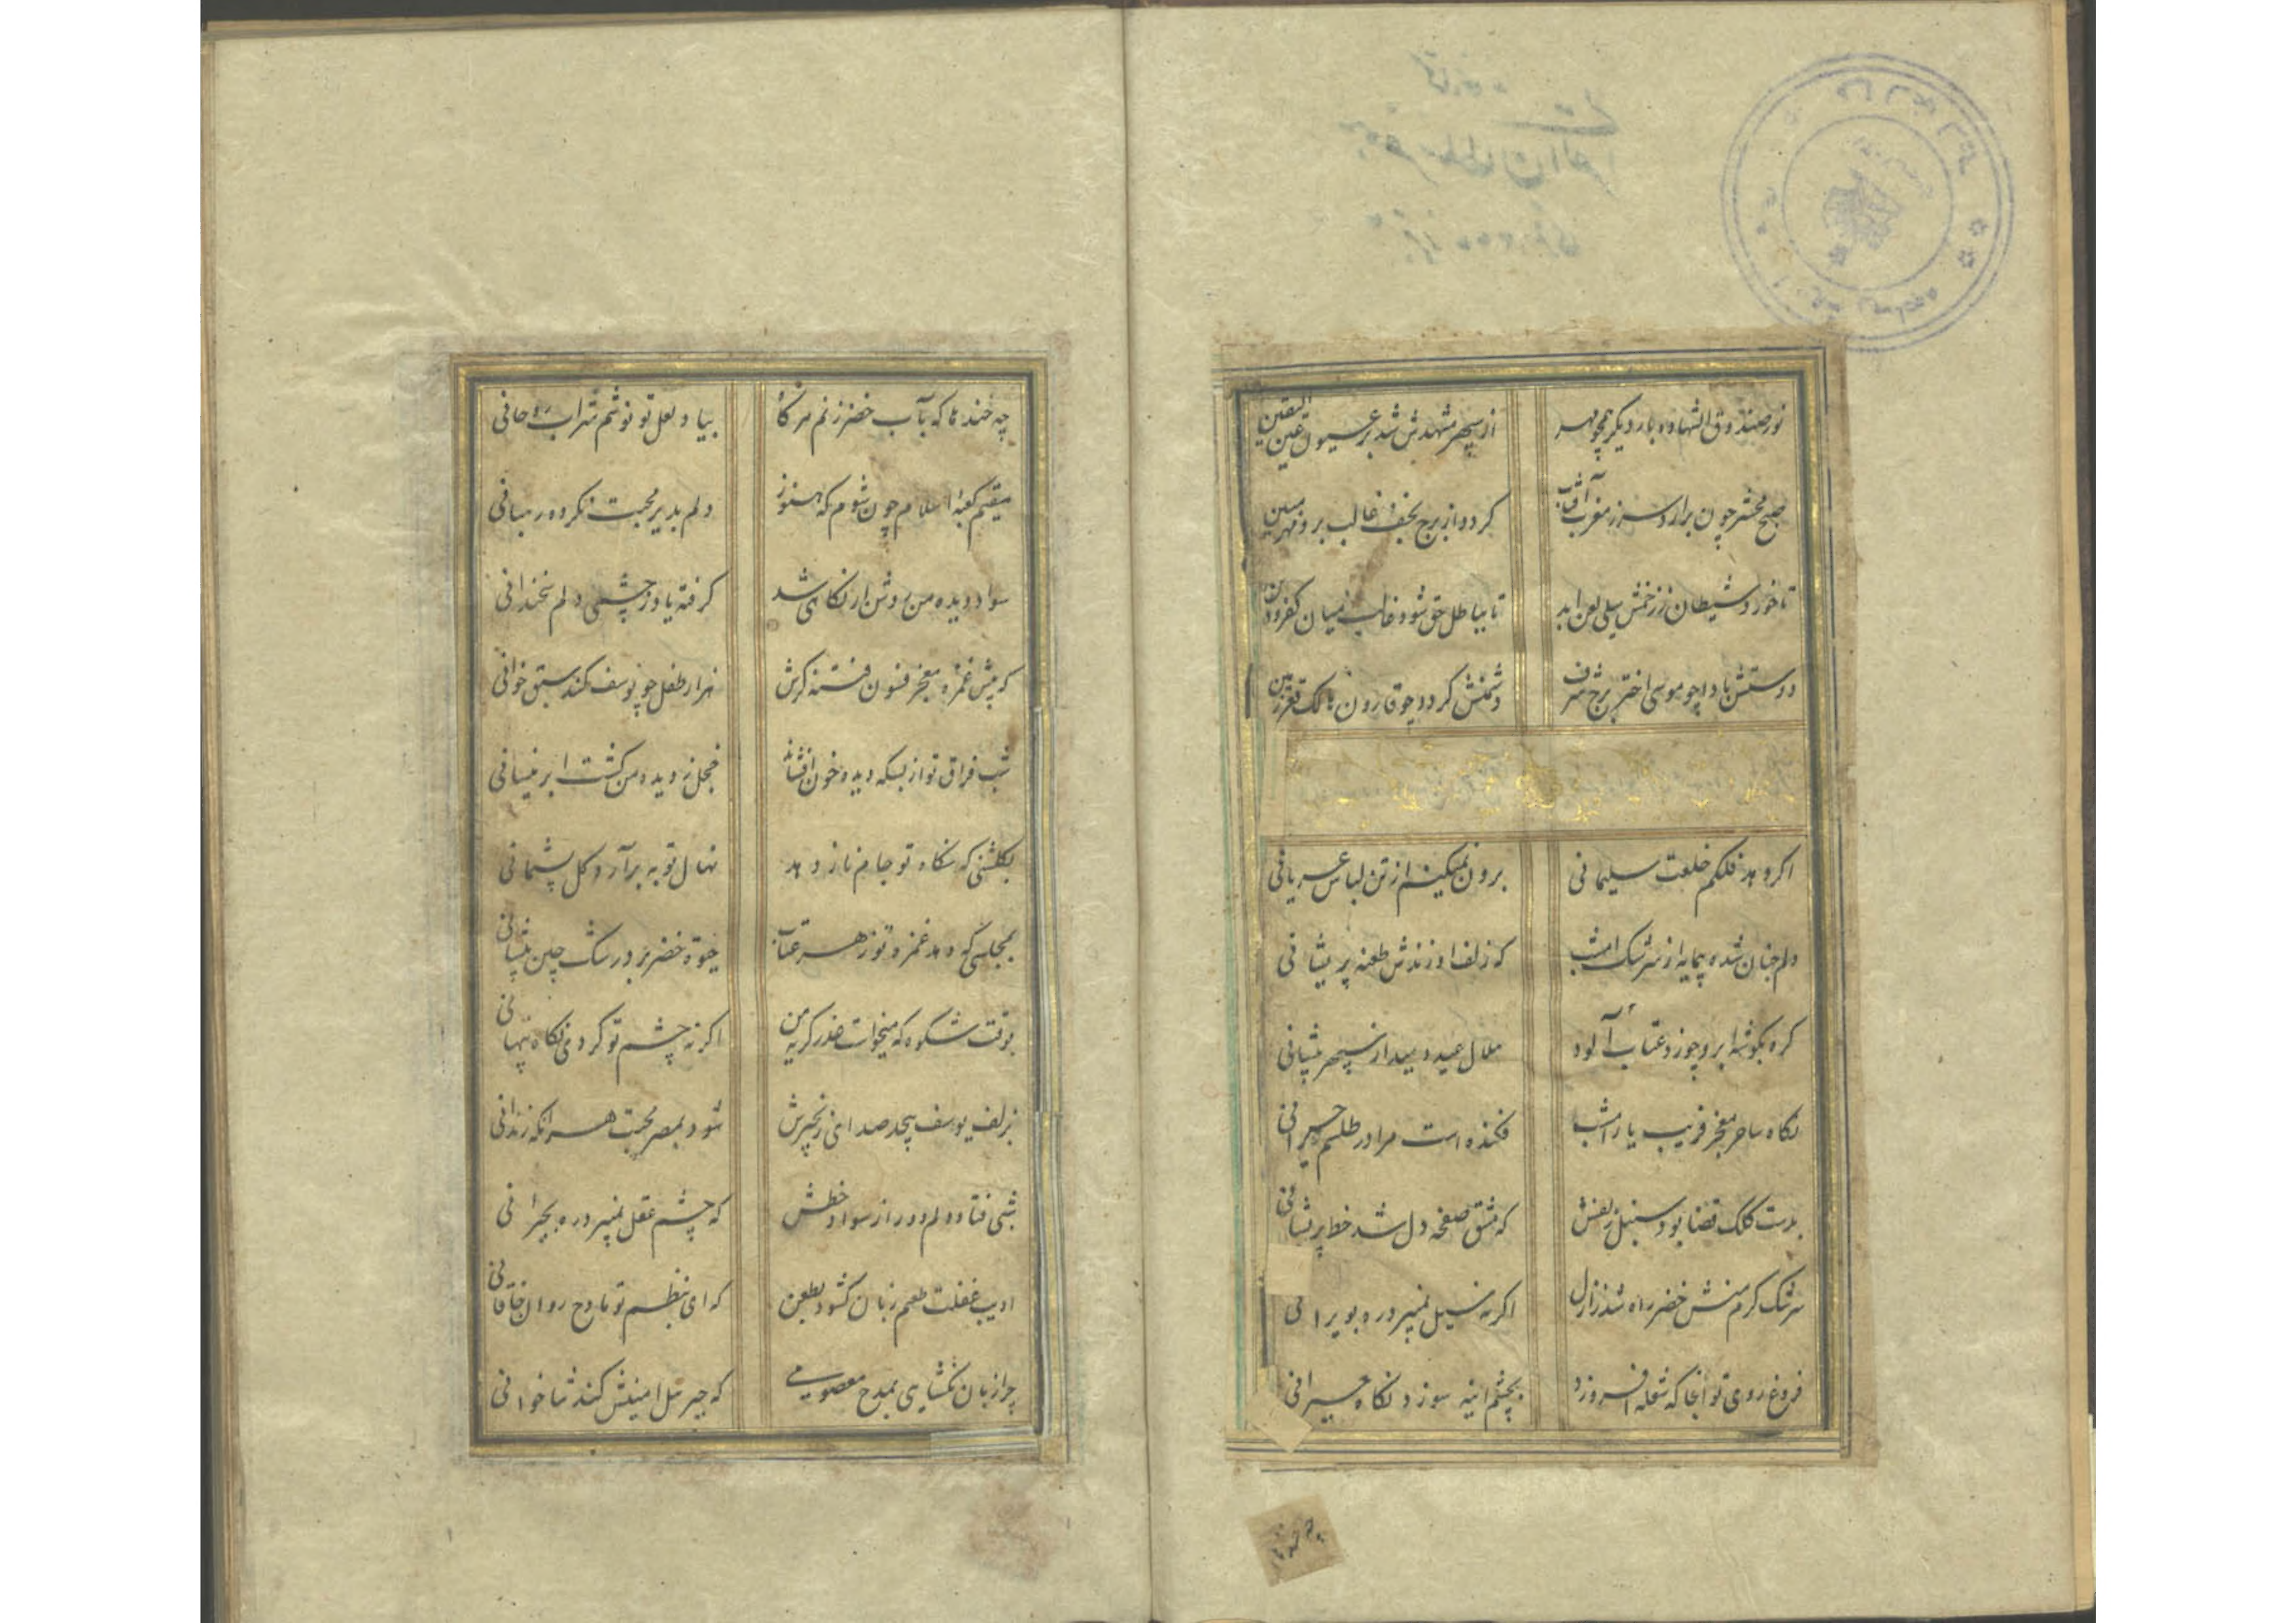 نور صندوق الشهاده بار دیگر همچو مهر از سپهر مشهدش شد بر عیون عین الیقین
صبح محشر چون برارد سر ز مغرب آفتاب کردد از برج نجف غالب بروز مهر مبین
تا خورد شیطان ز زخمش سیلی لعن ابد تا بباطل حق شود غالب میان کفر و دین
دوستش بادا چو موسی اختر برج شرف دشمنش کردد چو قارون هالک قعر زمین
اکر دهد فلکم خلعت سلیمانی برون نمیکنم از تن لباس عریانی
دلم چنان شده پیمایه از سرشک امشب که زلف او زندش طعنه پریشانی
کره بکوشه ابرو چو زد عتاب آلود هلال عید دمید از سپهر پیشانی
نکاه ساحر معجز فریب یار امشب فکنده است مرا در طلسم حیرانی
بدست کلک قضا بود سنبل زلفش که مشق صفحه دل شد خط پریشانی
سرشک کرم منش خضر راه شد ز ازل اکر نه سیل نمیبرد ره بویرانی
فروغ روی تو انجا که شعله افروزد بچشم اینه سوزد نکاه حیرانی
چه خنده ها که بآب خضر زنم هر کاه بیاد لعل تو نوشم شراب ریحانی
مقیم کعبه اسلام چون شوم که هنوز دلم بدیر محبت نکرده رهبانی
سواد دیده من روشن از نکاهی شد کرفته یاد ز چشمی دلم سخندانی
که پیش غمزه معجز فسون فتنه کرش هزار طفل چو یوسف کند سبق خوانی
شب فراق تو از بسکه دیده خون افشاند خجل ز دیده من کشت ابر نیسانی
بکلشنی که نکاه تو جام ناز دهد نهال توبه برآرد کل پشیمانی
بمجلسی که دهد غمزه تو زهر عتاب حیوة خضر برد رشک چین پیشانی
بوقت شکوه که میخواست عذر کریه من اکر نه چشم تو کردی نکاه پنهانی
بزلف یوسف پیچد صدای زنجیرش شود بمصر محبت هر انکه زندانی
شبی فتاد دلم دور از سواد خطش که چشم عقل نمیبرد ره بحیرانی
ادیب غفلت طبعم زبان کشود بطعن که ای بنظم تو مادح روان خاقانی
چرا زبان نکشایی بمدح معصومی که جبرئیل امینش کند ثناخوانی